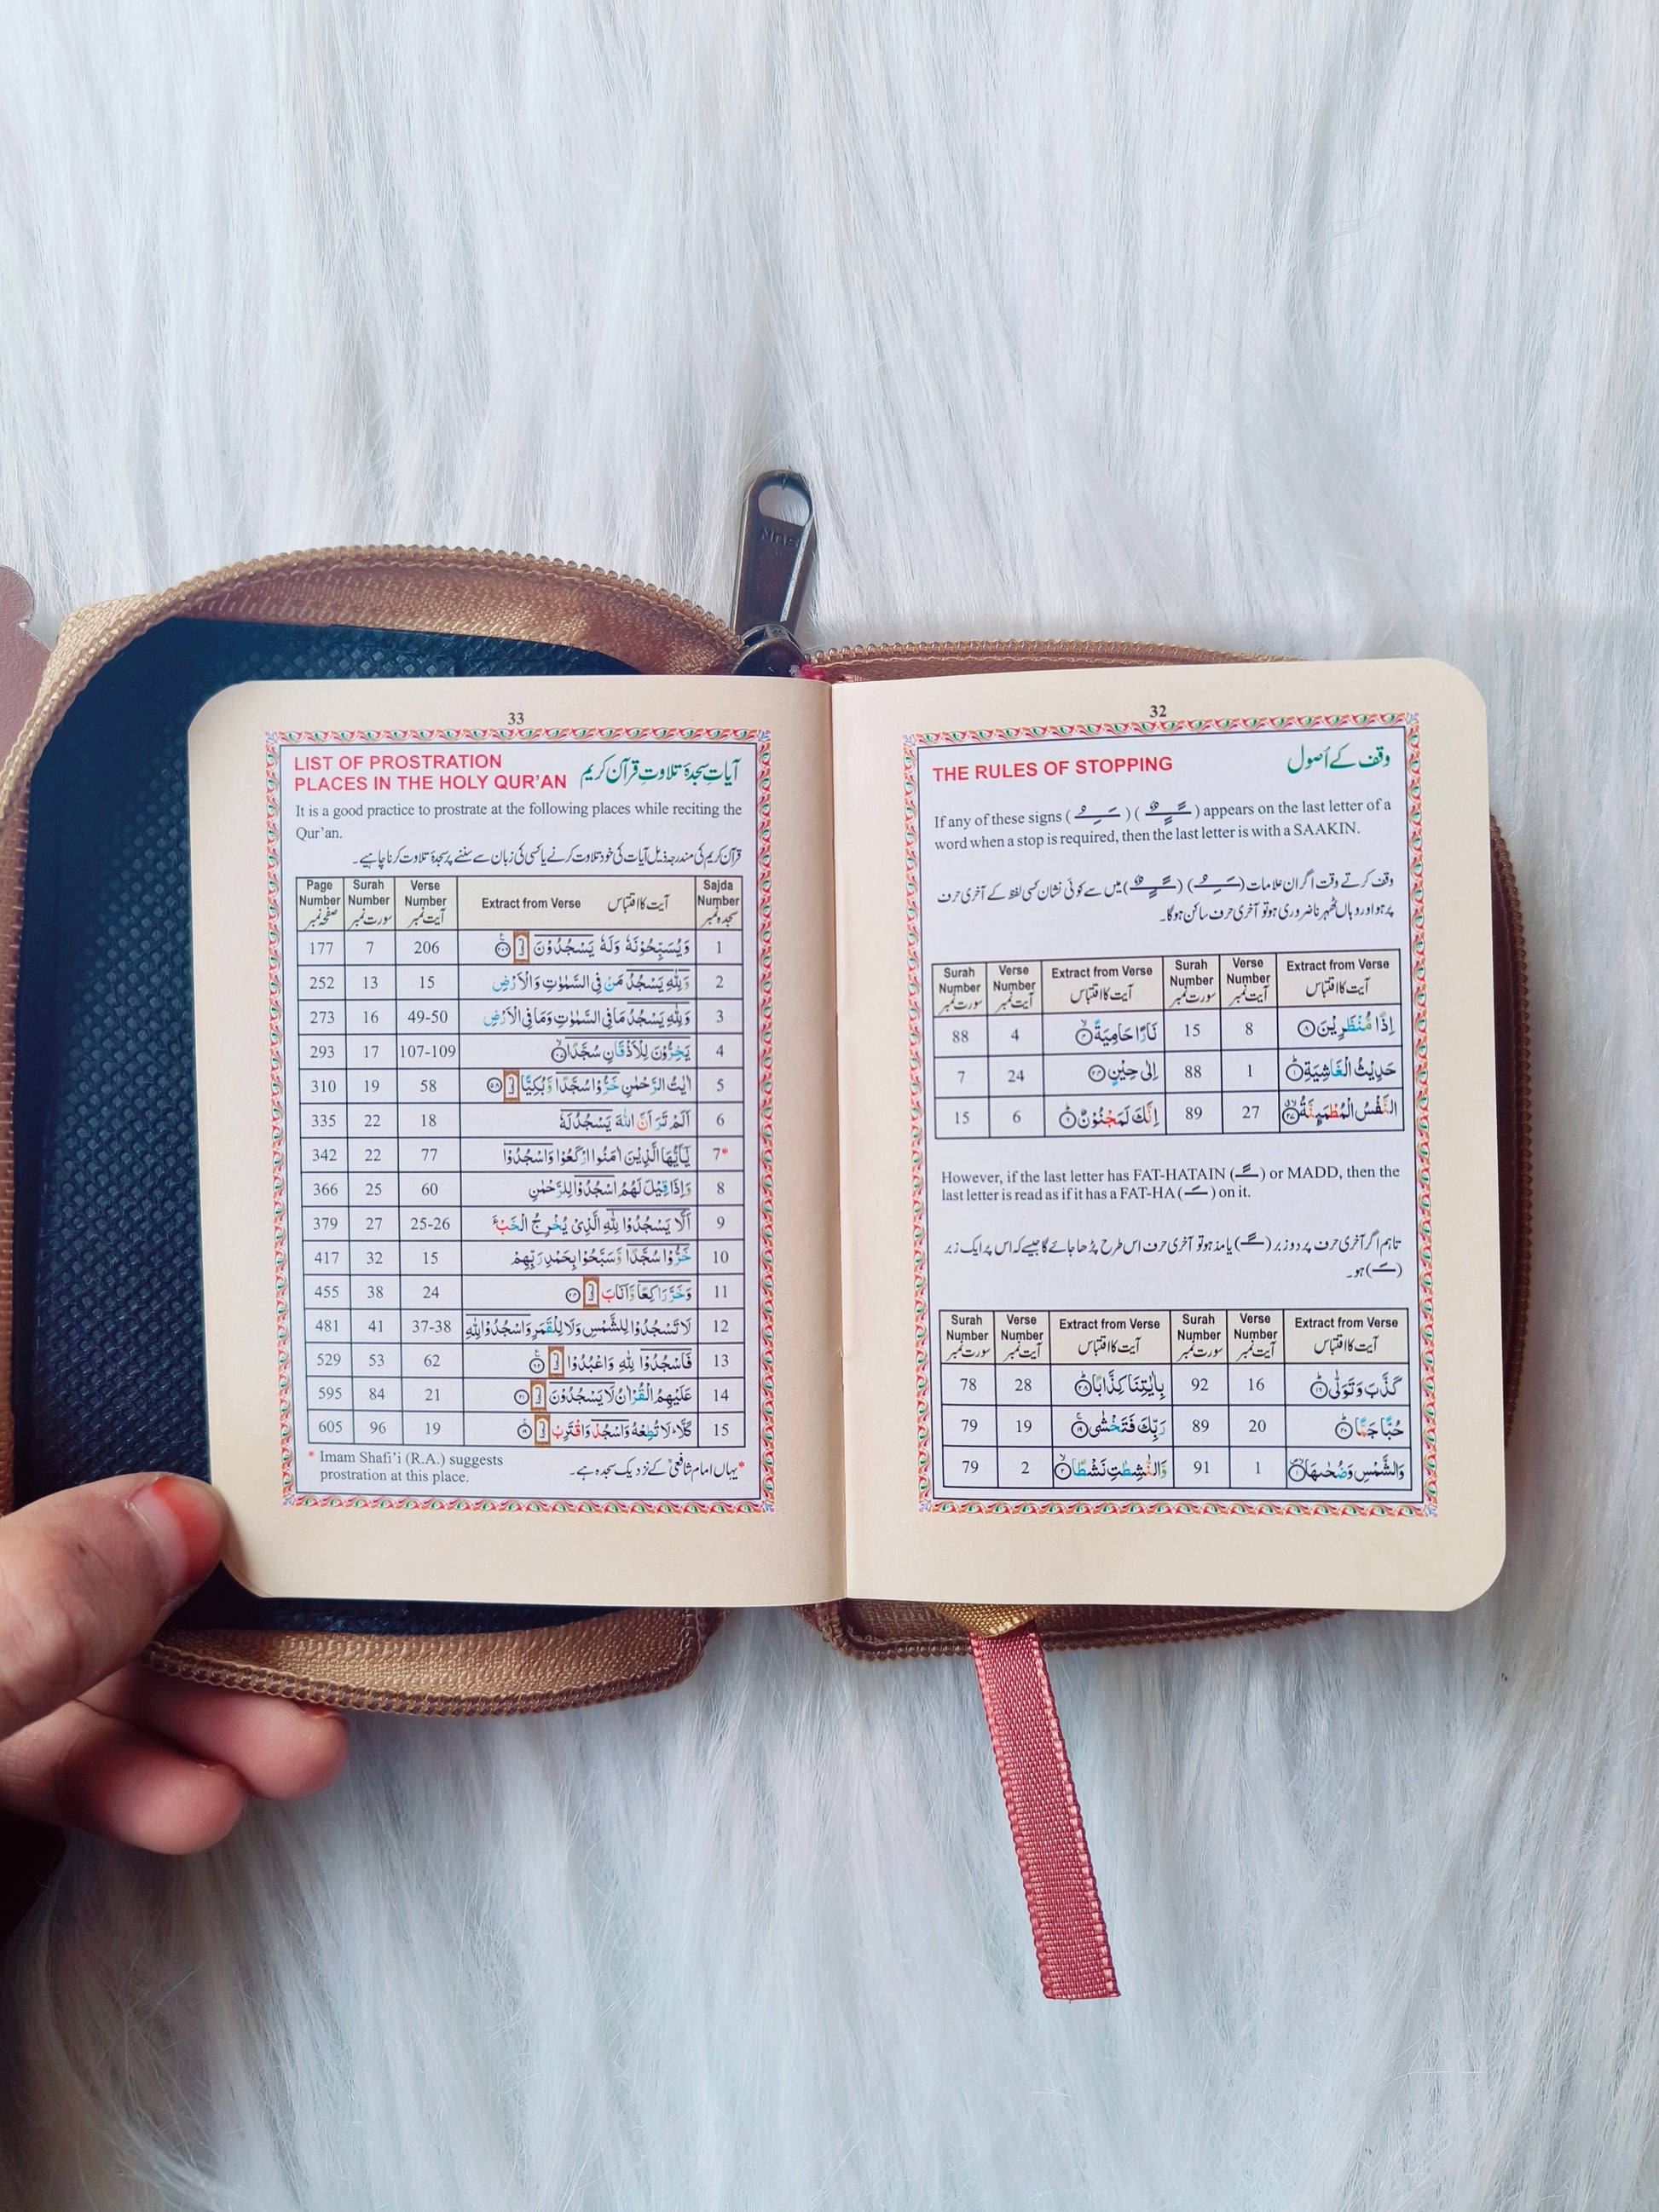 33
LIST OF PROSTRATION
PLACES IN THE HOLY QUR’AN
آیاتِ سجدۂ تلاوتِ قرآن کریم
It is a good practice to prostrate at the following places while reciting the
Qur’an.
قرآن کریم کی مندرجہ ذیل آیات کی خود تلاوت کرنے یا کسی کی زبان سے سننے پر سجدۂ تلاوت کرنا چاہیے۔
Page Number صفحہ نمبر Surah Number سورت نمبر Verse Number آیت نمبر Extract from Verse آیت کا اقتباس Sajda Number سجدہ نمبر
177 7 206 وَيُسَبِّحُوْنَهٗ وَلَهٗ يَسْجُدُوْنَ 1
252 13 15 وَلِلّٰهِ يَسْجُدُ مَنْ فِي السَّمٰوٰتِ وَالْاَرْضِ 2
273 16 49-50 وَلِلّٰهِ يَسْجُدُ مَا فِي السَّمٰوٰتِ وَمَا فِي الْاَرْضِ 3
293 17 107-109 يَخِرُّوْنَ لِلْاَذْقَانِ سُجَّدًا 4
310 19 58 اٰيٰتُ الرَّحْمٰنِ خَرُّوْا سُجَّدًا وَّبُكِيًّا 5
335 22 18 اَلَمْ تَرَ اَنَّ اللّٰهَ يَسْجُدُ لَهٗ 6
342 22 77 يٰۤاَيُّهَا الَّذِيْنَ اٰمَنُوا ارْكَعُوْا وَاسْجُدُوْا 7*
366 25 60 وَاِذَا قِيْلَ لَهُمُ اسْجُدُوْا لِلرَّحْمٰنِ 8
379 27 25-26 اَلَّا يَسْجُدُوْا لِلّٰهِ الَّذِيْ يُخْرِجُ الْخَبْءَ 9
417 32 15 خَرُّوْا سُجَّدًا وَّسَبَّحُوْا بِحَمْدِ رَبِّهِمْ 10
455 38 24 وَخَرَّ رَاكِعًا وَّاَنَابَ 11
481 41 37-38 لَا تَسْجُدُوْا لِلشَّمْسِ وَلَا لِلْقَمَرِ وَاسْجُدُوْا لِلّٰهِ 12
529 53 62 فَاسْجُدُوْا لِلّٰهِ وَاعْبُدُوْا 13
595 84 21 عَلَيْهِمُ الْقُرْاٰنُ لَا يَسْجُدُوْنَ 14
605 96 19 كَلَّا لَا تُطِعْهُ وَاسْجُدْ وَاقْتَرِبْ 15
* Imam Shafi’i (R.A.) suggests
prostration at this place.
*یہاں امام شافعیؒ کے نزدیک سجدہ ہے۔
32
THE RULES OF STOPPING
وقف کے اُصول
If any of these signs ( ) ( ) appears on the last letter of a
word when a stop is required, then the last letter is with a SAAKIN.
وقف کرتے وقت اگر ان علامات ( ) ( ) میں سے کوئی نشان کسی لفظ کے آخری حرف
پر ہو اور وہاں ٹھہرنا ضروری ہو تو آخری حرف ساکن ہوگا۔
Surah Number سورت نمبر Verse Number آیت نمبر Extract from Verse آیت کا اقتباس Surah Number سورت نمبر Verse Number آیت نمبر Extract from Verse آیت کا اقتباس
88 4 نَارًا حَامِيَةً 15 8 اِذًا مُّنْظَرِيْنَ
7 24 اِلٰى حِيْنٍ 88 1 حَدِيْثُ الْغَاشِيَةِ
15 6 اِنَّكَ لَمَجْنُوْنٌ 89 27 النَّفْسُ الْمُطْمَئِنَّةُ
However, if the last letter has FAT-HATAIN ( ) or MADD, then the
last letter is read as if it has a FAT-HA ( ) on it.
تاہم اگر آخری حرف پر دو زبر ( ) یا مد ہو تو آخری حرف اس طرح پڑھا جائے گا جیسے کہ اس پر ایک زبر
( ) ہو۔
Surah Number سورت نمبر Verse Number آیت نمبر Extract from Verse آیت کا اقتباس Surah Number سورت نمبر Verse Number آیت نمبر Extract from Verse آیت کا اقتباس
78 28 بِاٰيٰتِنَا كِذَّابًا 92 16 كَذَّبَ وَتَوَلّٰى
79 19 رَبِّكَ فَتَخْشٰى 89 20 حُبًّا جَمًّا
79 2 وَّالنّٰشِطٰتِ نَشْطًا 91 1 وَالشَّمْسِ وَضُحٰىهَا